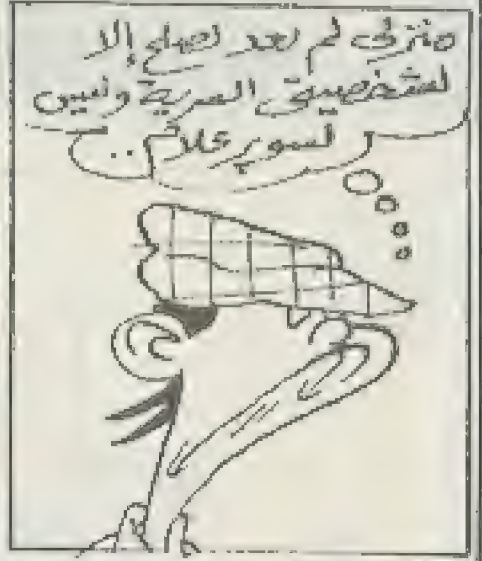 منزلى لم يعد يصلح إلا
لشخصيتى السرية وليس
لسوبر علام ..